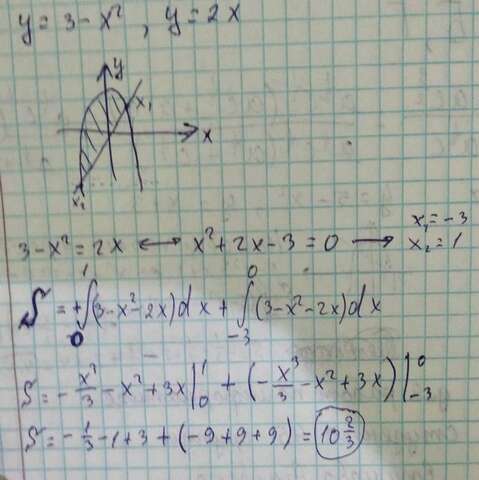 y = 3 - x² , y = 2x
y
x₁
x
x₂
3 - x² = 2x ⟷ x² + 2x - 3 = 0 ⟶ x₁ = -3
x₂ = 1
S = +∫₀¹ (3 - x² - 2x) dx + ∫₋₃⁰ (3 - x² - 2x) dx
S = - x³/3 - x² + 3x |₀¹ + (- x³/3 - x² + 3x) |₋₃⁰
S = - 1/3 - 1 + 3 + (-9 + 9 + 9) = 10 2/3